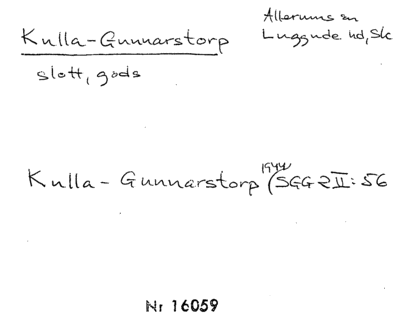 Kulla-Gunnarstorp
slott, gods
Allerums sn
Luggude hd, Sk
Kulla-Gunnarstorp 1944 (SGG 2 II: 56
Nr 16059